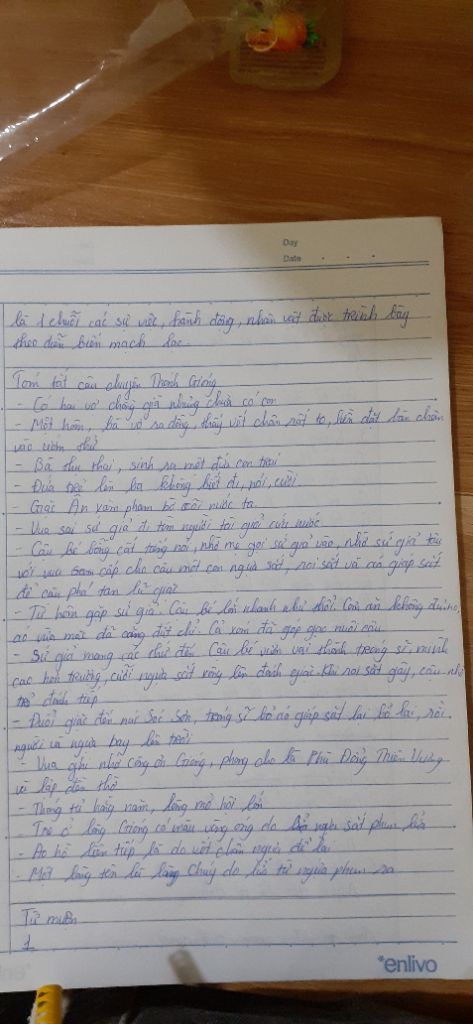 Day
Date
là 1 chuỗi các sự việc, hành động, nhân vật được trình bày
theo diễn biến mạch lạc.
Tóm tắt câu chuyện Thánh Gióng
- Có hai vợ chồng già nhưng chưa có con
- Một hôm, bà vợ ra đồng, thấy vết chân rất to, liền đặt bàn chân
vào ướm thử
- Bà thụ thai, sinh ra một đứa con trai
- Đứa trẻ lên ba không biết đi, nói, cười.
- Giặc Ân xâm phạm bờ cõi nước ta.
- Vua sai sứ giả đi tìm người tài giỏi cứu nước
- Cậu bé bỗng cất tiếng nói, nhờ mẹ gọi sứ giả vào, nhờ sứ giả tâu
với vua cấp cho cậu một con ngựa sắt, roi sắt và áo giáp sắt
để cậu phá tan lũ giặc
- Từ hôm gặp sứ giả. Cậu bé lớn nhanh như thổi. Cơm ăn không đủ no,
áo vừa mặc đã căng đứt chỉ. Cả xóm đã góp gạo nuôi cậu
- Sứ giả mang các thứ đến. Cậu bé vươn vai thành tráng sĩ, mình
cao hơn trượng, cưỡi ngựa sắt xông lên đánh giặc. Khi roi sắt gãy, cậu nhổ
tre đánh tiếp
- Đuổi giặc đến núi Sóc Sơn, tráng sĩ bỏ áo giáp sắt lại bỏ lại, rồi
người và ngựa bay lên trời
- Vua ghi nhớ công ơn Gióng, phong cho là Phù Đổng Thiên Vương
và lập đền thờ
- Tháng tư hàng năm, làng mở hội lớn
- Tre ở làng Gióng có màu vàng óng do ngựa sắt phun lửa
- Ao hồ liên tiếp là do vết chân ngựa để lại
- Một làng tên là làng Cháy do lửa từ ngựa phun ra
Từ mượn
1
enlivo